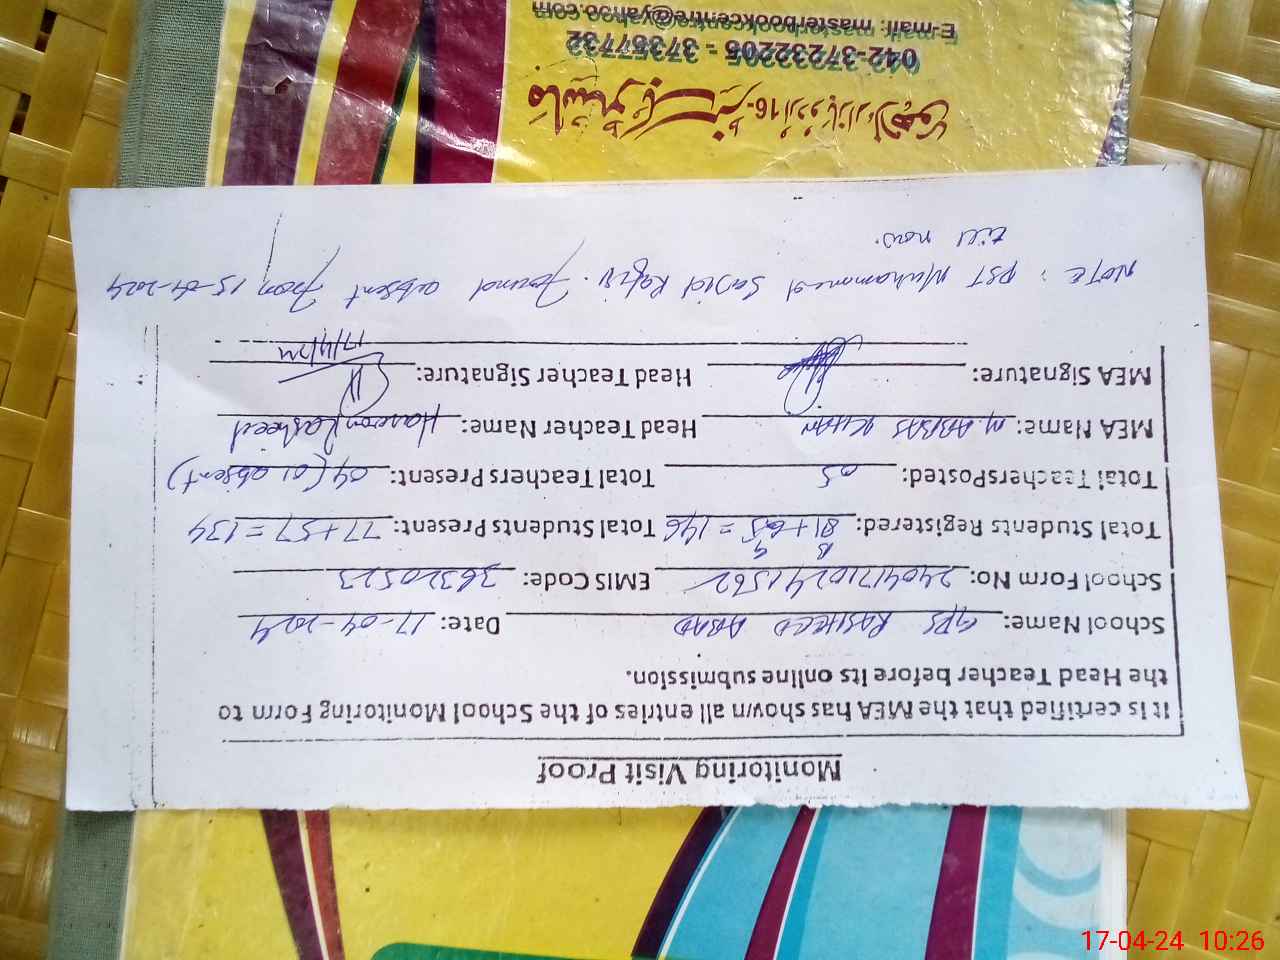 Monitoring Visit Proof
It is certified that the MEA has shown all entries of the School Monitoring Form to
the Head Teacher before its online submission.
School Name: GPS RASHEED ABAD Date: 17-04-2024
School Form No: 24041710241562 EMIS Code: 36320523
B G
Total Students Registered: 81+65 = 146 Total Students Present: 77+57 = 134
Total TeachersPosted: 05 Total Teachers Present: 04 (01 absent)
MEA Name: M. ABBAS KHAN Head Teacher Name: Haroon Rasheed
MEA Signature: Head Teacher Signature:
17/4/24
NOTE: PST Muhammad Sajid Rafiq. Found absent from 15-04-2024
till now.
042-37232205 - 37357732
E-mail: masterbookcentre@yahoo.com
17-04-24 10:26